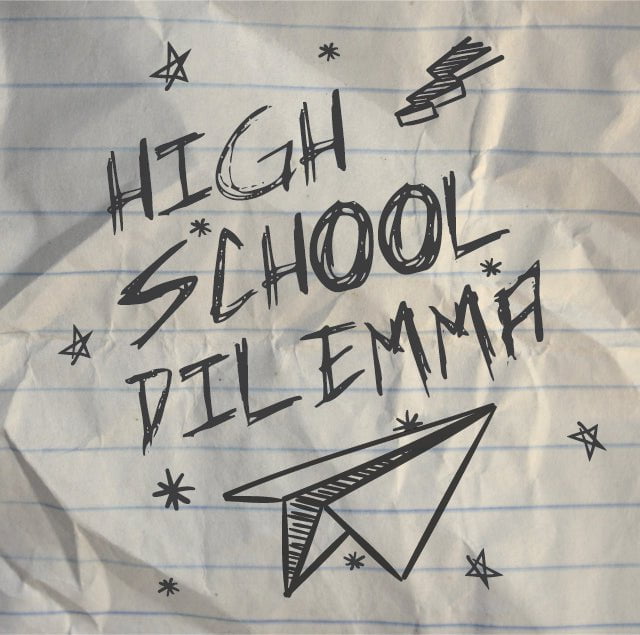 HIGH
SCHOOL
DILEMMA